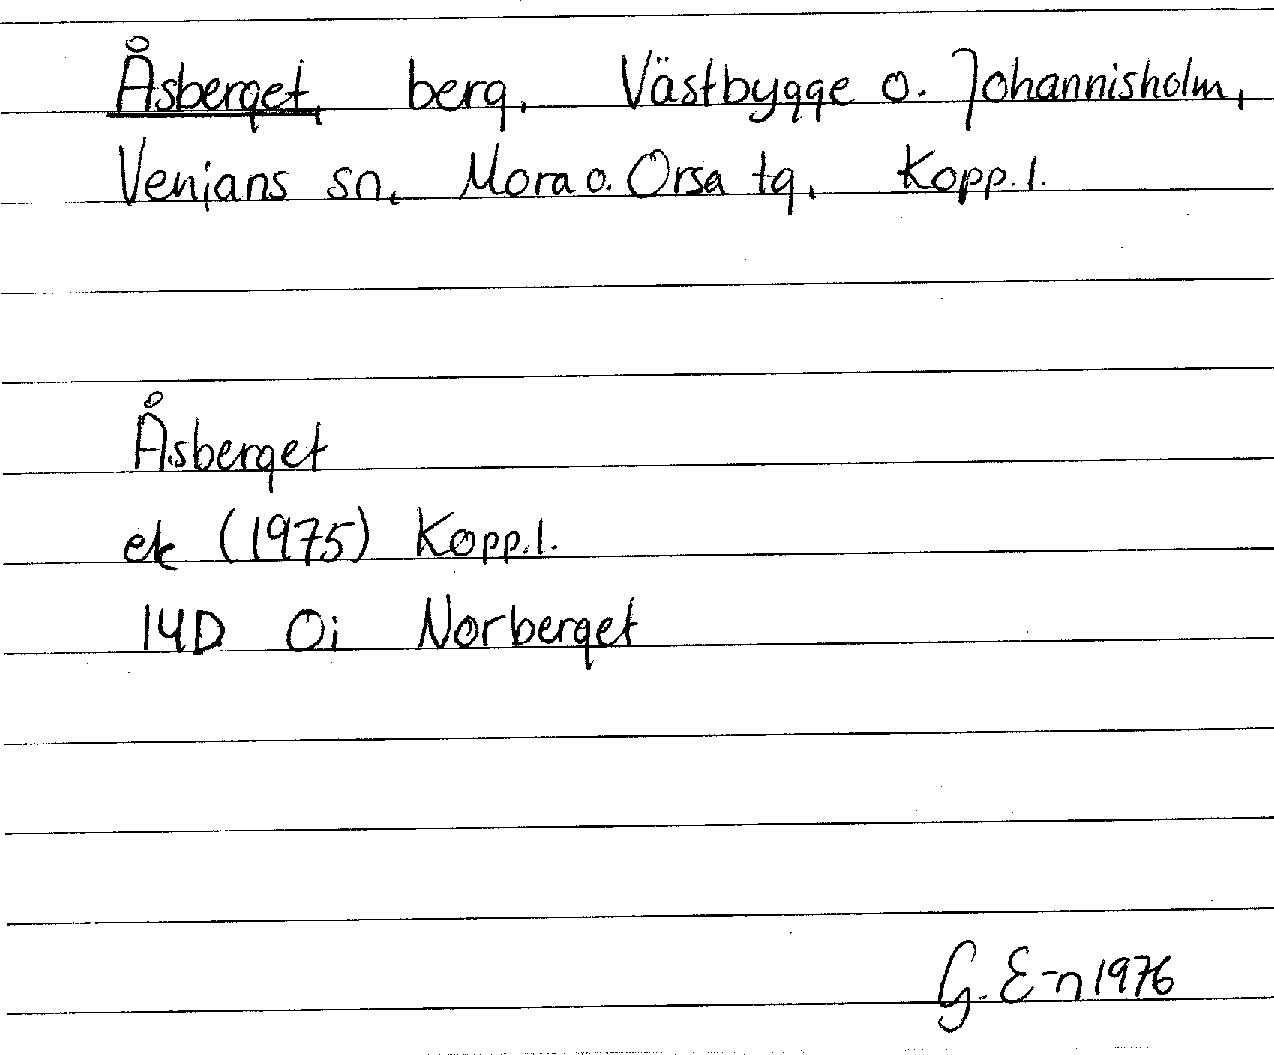 Åsberget, berg, Västbygge o. Johannisholm,
Venjans sn, Mora o. Orsa tg, Kopp. l.
Åsberget
ek (1975) Kopp. l.
14D 0i Norberget
G. E-n 1976